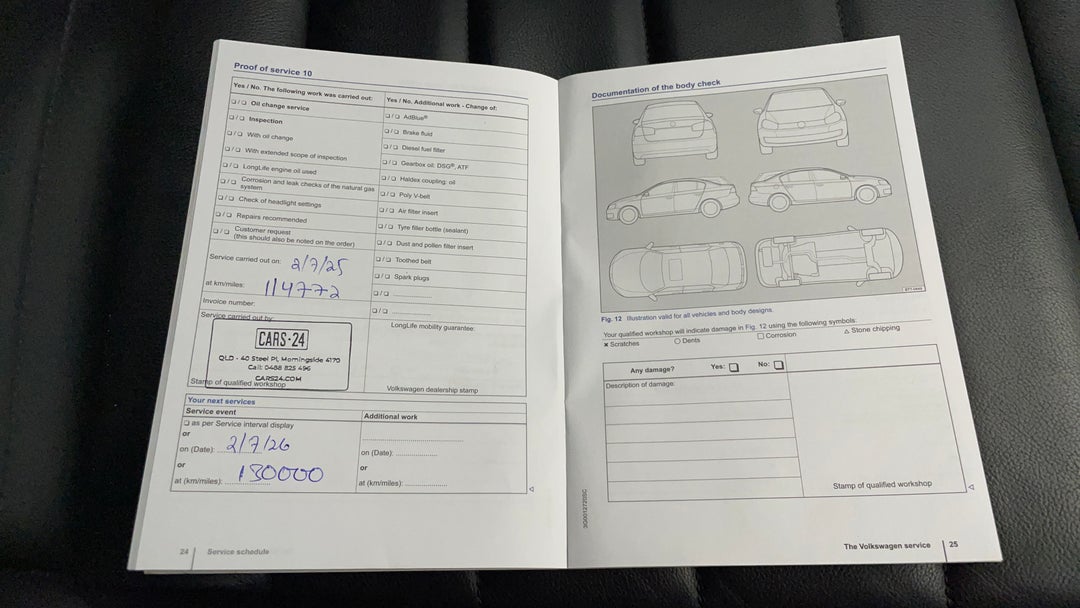 Proof of service 10
Yes / No. The following work was carried out:
❑ / ❑ Oil change service
❑ / ❑ Inspection
❑ / ❑ With oil change
❑ / ❑ With extended scope of inspection
❑ / ❑ LongLife engine oil used
❑ / ❑ Corrosion and leak checks of the natural gas
system
❑ / ❑ Check of headlight settings
❑ / ❑ Repairs recommended
❑ / ❑ Customer request
(this should also be noted on the order)
Service carried out on: 2/7/25
at km/miles: 114772
Invoice number:
Service carried out by:
CARS·24
QLD - 40 Steel Pl, Morningside 4170
Call: 0488 825 496
CARS24.COM
Stamp of qualified workshop
Yes / No. Additional work - Change of:
❑ / ❑ AdBlue®
❑ / ❑ Brake fluid
❑ / ❑ Diesel fuel filter
❑ / ❑ Gearbox oil: DSG®, ATF
❑ / ❑ Haldex coupling: oil
❑ / ❑ Poly V-belt
❑ / ❑ Air filter insert
❑ / ❑ Tyre filler bottle (sealant)
❑ / ❑ Dust and pollen filter insert
❑ / ❑ Toothed belt
❑ / ❑ Spark plugs
❑ / ❑ ....................
❑ / ❑
LongLife mobility guarantee:
Volkswagen dealership stamp
Your next services
Service event
❑ as per Service interval display
or
on (Date): 2/7/26
or
at (km/miles): 130000
Additional work
..............................
on (Date): ..............
or
at (km/miles): ..............
24 Service schedule
Documentation of the body check
Fig. 12 Illustration valid for all vehicles and body designs.
Your qualified workshop will indicate damage in Fig. 12 using the following symbols:
✖ Scratches ○ Dents □ Corrosion △ Stone chipping
Any damage? Yes: ❑ No: ❑
Description of damage:
Stamp of qualified workshop
The Volkswagen service 25